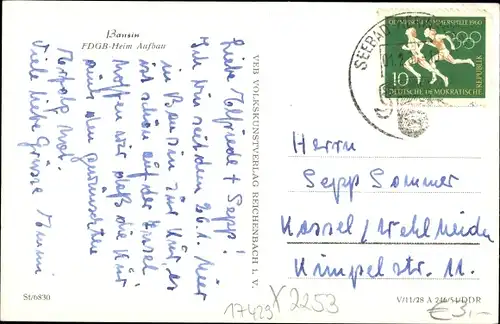 Bansin
FDGB-Heim Aufbau
Liebe Elfriede + Sepp!
Ich bin seit dem 26.1. hier
in Bansin zur Kur, es
ist schön auf der Insel
hoffen wir daß die Kur
auch den gewünschten
Erfolg hat.
Viele liebe Grüsse
VEB VOLKSKUNSTVERLAG REICHENBACH I. V.
SEEBAD
OLYMPISCHE SOMMERSPIELE 1960
10
DEUTSCHE DEMOKRATISCHE
REPUBLIK
Herrn
Sepp Sommer
Kassel / Wehlheiden
Kimpelstr. 11.
St/6830
17429
2253
V/11/28 A 246/51/DDR
€ 3,-